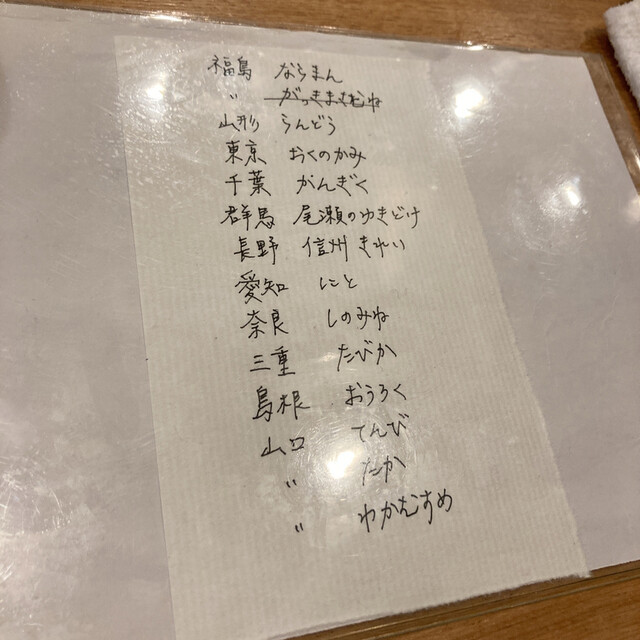 福島 ならまん
〃 がっきまさむね
山形 らんどう
東京 おくのかみ
千葉 がんぎく
群馬 尾瀬のゆきどけ
長野 信州きれい
愛知 にと
奈良 しのみね
三重 たびか
島根 おうろく
山口 てんび
〃 たか
〃 わかむすめ